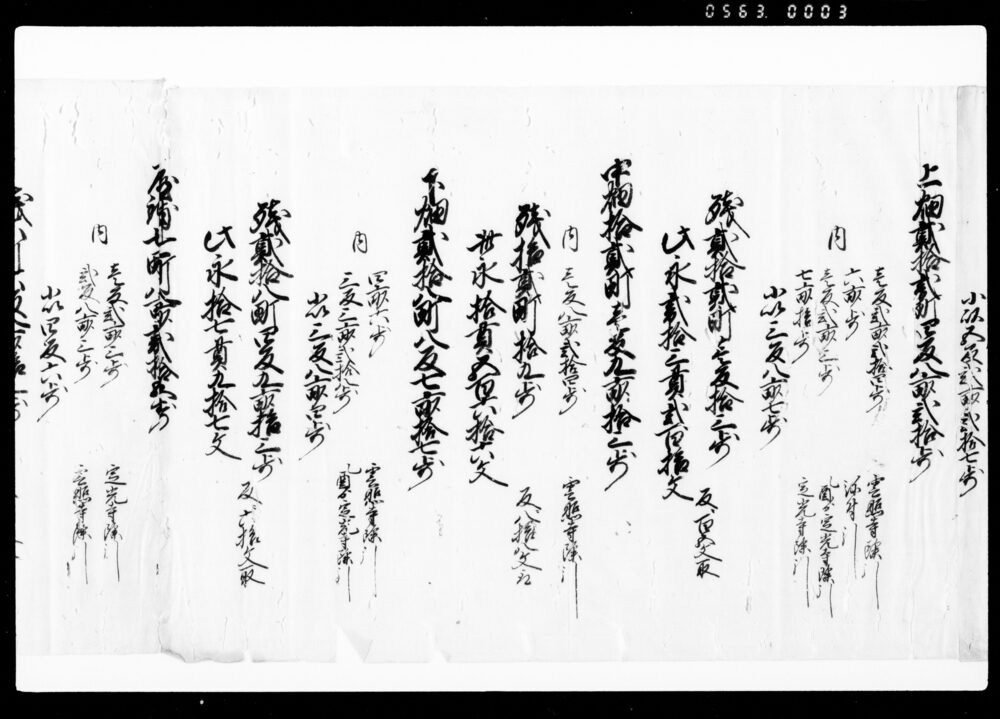 0563. 0003
小以五反弐畝弐拾七歩
上畑弐拾弐町四反八畝弐拾歩
内
壱反弐畝弐拾四歩 雲照寺除引
六畝歩
壱反弐畝三歩 風呂定光寺除引
七畝拾歩 定光寺除引
小以三反八畝七歩
残弐拾弐町壱反拾三歩
此永弐拾三貫弐百拾文 反百五文取
中畑拾弐町壱反九畝拾三歩
内 壱反八畝弐拾四歩 雲照寺除引
残拾弐町拾九歩
此永拾貫五百六拾六文 反八拾八文取
下畑弐拾八町八反七畝拾七歩
内
四畝六歩 雲照寺除引
三反三畝弐拾八歩 風呂定光寺除引
小以三反八畝四歩
残弐拾八町四反九畝拾三歩
此永拾七貫九拾七文 反六拾文取
屋鋪七町八畝弐拾五歩
内
壱反弐畝三歩 定光寺除引
弐反八畝三歩 雲照寺除引
小以四反六歩